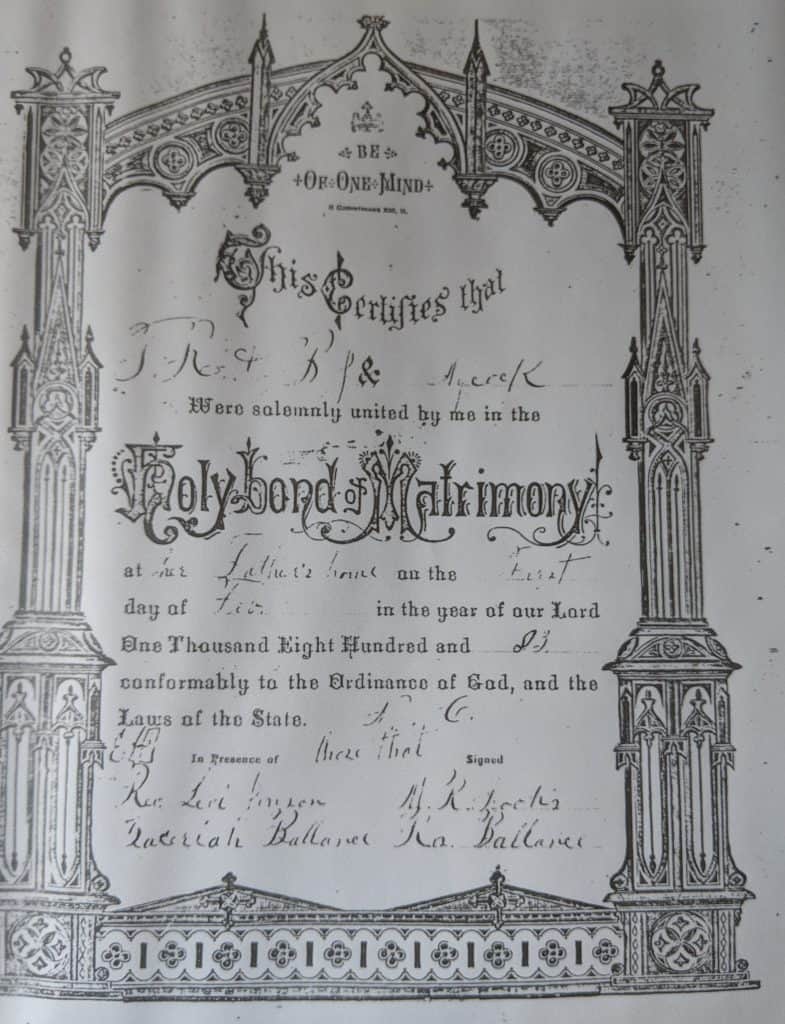 BE
OF ONE MIND
II Corinthians XIII, 11.
This Certifies that
& Aycock
Were solemnly united by me in the
Holy bond of Matrimony
at her Father's home on the First
day of in the year of our Lord
One Thousand Eight Hundred and 83
conformably to the Ordinance of God, and the
Laws of the State. C.
In Presence of these that Signed
Rev. Levi
Zaceriah Ballance Ballance